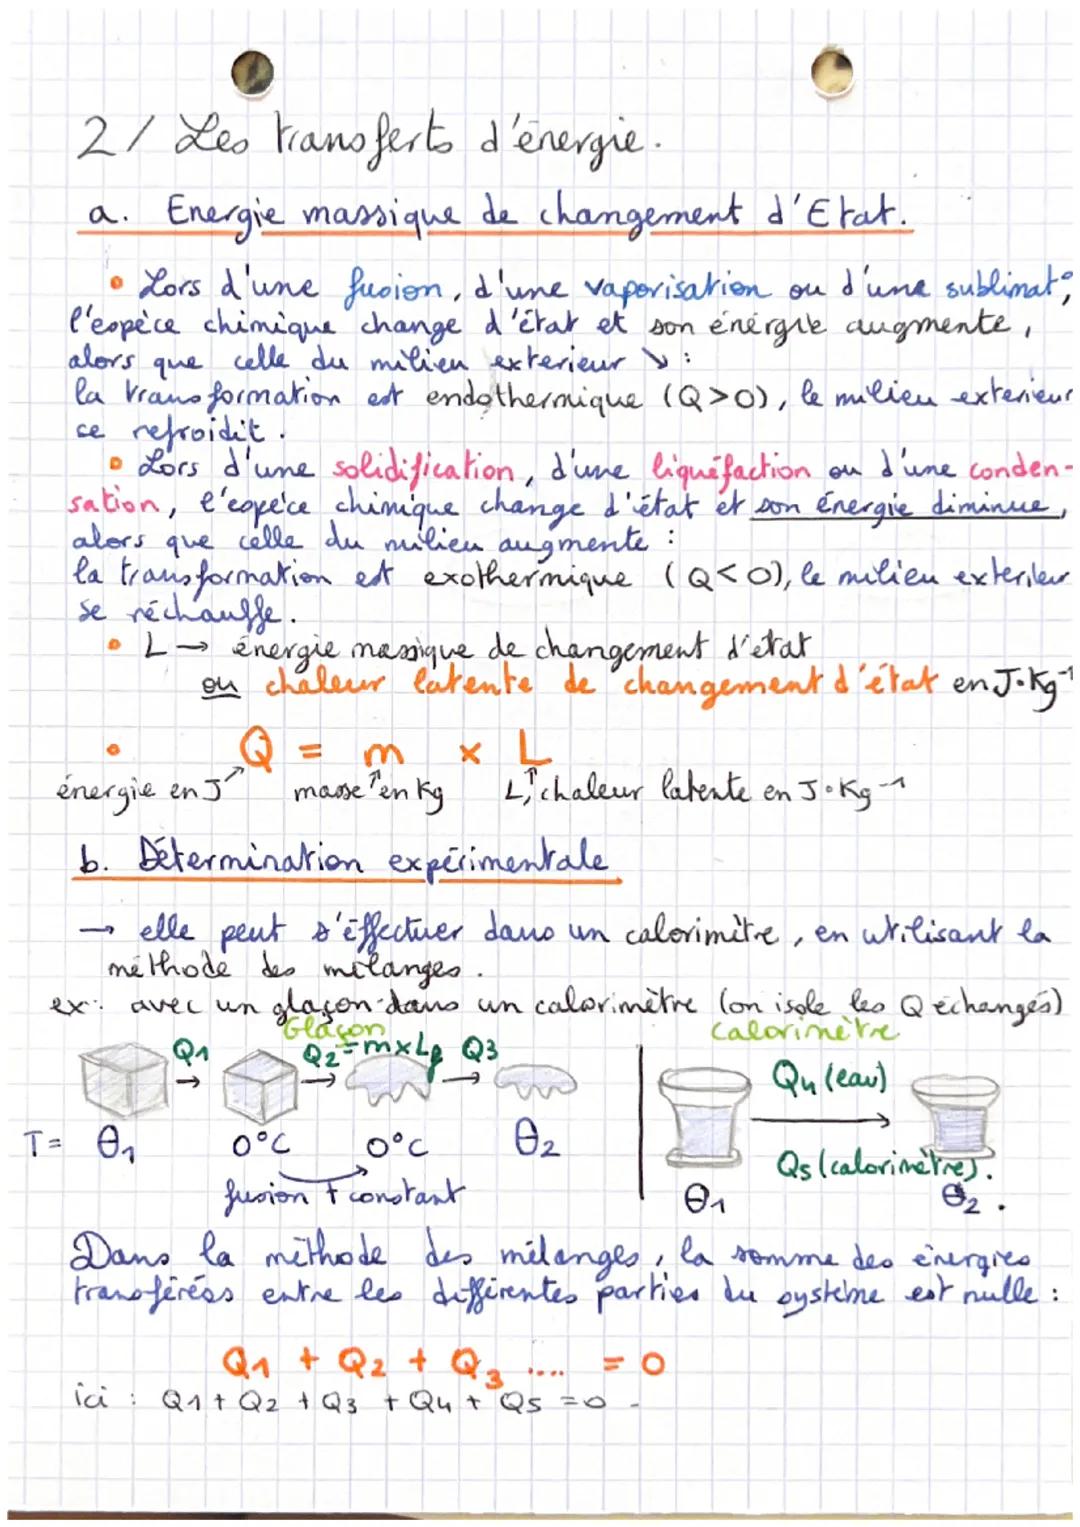 2/ Les transferts d'énergie.
a. Energie massique de changement d'Etat.
• Lors d'une fusion, d'une vaporisation ou d'une sublimat°,
l'espèce chimique change d'état et son énergie augmente,
alors que celle du milieu exterieur ↘ :
la transformation est endothermique (Q>0), le milieu exterieur
se refroidit.
• Lors d'une solidification, d'une liquéfaction ou d'une conden-
sation, l'espèce chimique change d'état et son énergie diminue,
alors que celle du milieu augmente :
la transformation est exothermique (Q<0), le milieu exterieur
se réchauffe.
• L → énergie massique de changement d'état
ou chaleur latente de changement d'état en J.Kg⁻¹
• Q = m x L
énergie en J masse en kg L, chaleur latente en J.Kg⁻¹
b. Détermination expérimentale
→ elle peut s'éffectuer dans un calorimètre, en utilisant la
méthode des mélanges.
ex: avec un glaçon dans un calorimètre (on isole les Q échangés)
Glaçon calorimètre
Q1 → Q2 = m x Lf → Q3 → Q4 (eau)
Q5 (calorimètre).
T = θ1 0°C 0°C θ2 θ1 θ2.
fusion T constant
Dans la méthode des mélanges, la somme des énergies
transférées entre les différentes parties du système est nulle :
Q1 + Q2 + Q3 .... = 0
ici : Q1 + Q2 + Q3 + Q4 + Q5 = 0.